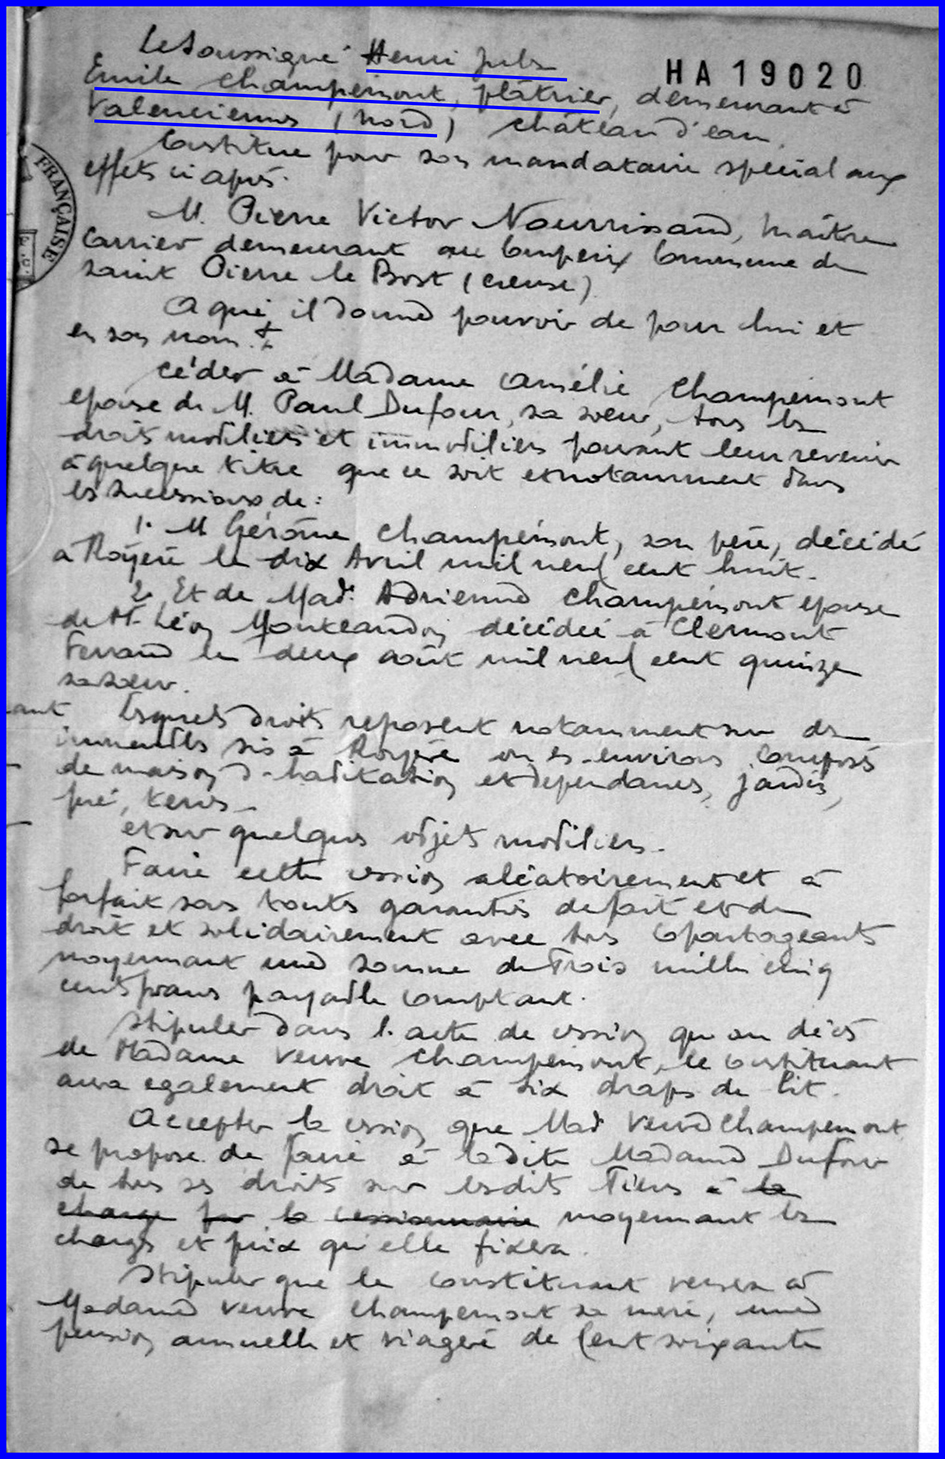 Le Soussigné Henri Jules
HA19020
Emile Champémont, plâtrier, demeurant à
Valenciennes (Nord) château d'eau
Constitue pour son mandataire spécial aux
effets ci après.
FRANÇAISE
M. Pierre Victor Nourrissand, maître
Carrier demeurant au Compeix Commune de
Saint Pierre le Bost (Creuse)
A qui il donne pouvoir de pour lui et
en son nom.
Céder à Madame Amélie Champémont
épouse de M. Paul Dufour, sa soeur, tous les
droits mobiliers et immobiliers pouvant leur revenir
à quelque titre que ce soit et notamment dans
les successions de :
1. M Gérôme Champémont, son père, décédé
à Royère le dix Avril mil neuf cent huit.
2. Et de Mad. Adrienne Champémont épouse
de M. Léon décédée à Clermont
Ferrand le deux août mil neuf cent quinze
sa soeur.
ant
Lesquels droits reposent notamment sur des
immeubles sis à Royère ou es-environs composés
de maison d'habitation et dépendances, jardin,
pré, terres
et sur quelques objets mobiliers.
Faire cette cession aléatoirement et à
forfait sans toutes garanties de fait et de
droit et solidairement avec tous copartageants
moyennant une somme de Trois mille cinq
cents francs payable comptant.
Stipuler dans l'acte de cession qu'au décès
de Madame Veuve Champémont, le constituant
aura également droit à six draps de lit.
Accepter la cession que Mad Veuve Champemont
se propose de faire à ladite Madame Dufour
de tous ses droits sur lesdits Tiers à la
charge par la cessionnaire moyennant les
charges et prix qu'elle fixera.
Stipuler que le constituant versera à
Madame Veuve Champemont sa mère, une
pension annuelle et viagère de Cent soixante